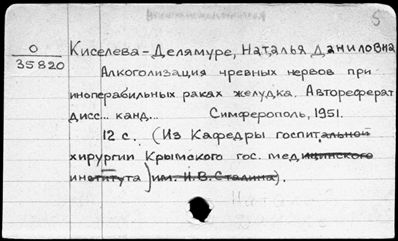 5
О
35820
Киселева-Делямуре, Наталья Даниловна
Алкоголизация чревных нервов при
иноперабильных раках желудка. Автореферат
дисс... канд... Симферополь, 1951.
12 с. (Из Кафедры госпитальной
хирургии Крымского гос. медицинского
института) им. И.В. Сталина).